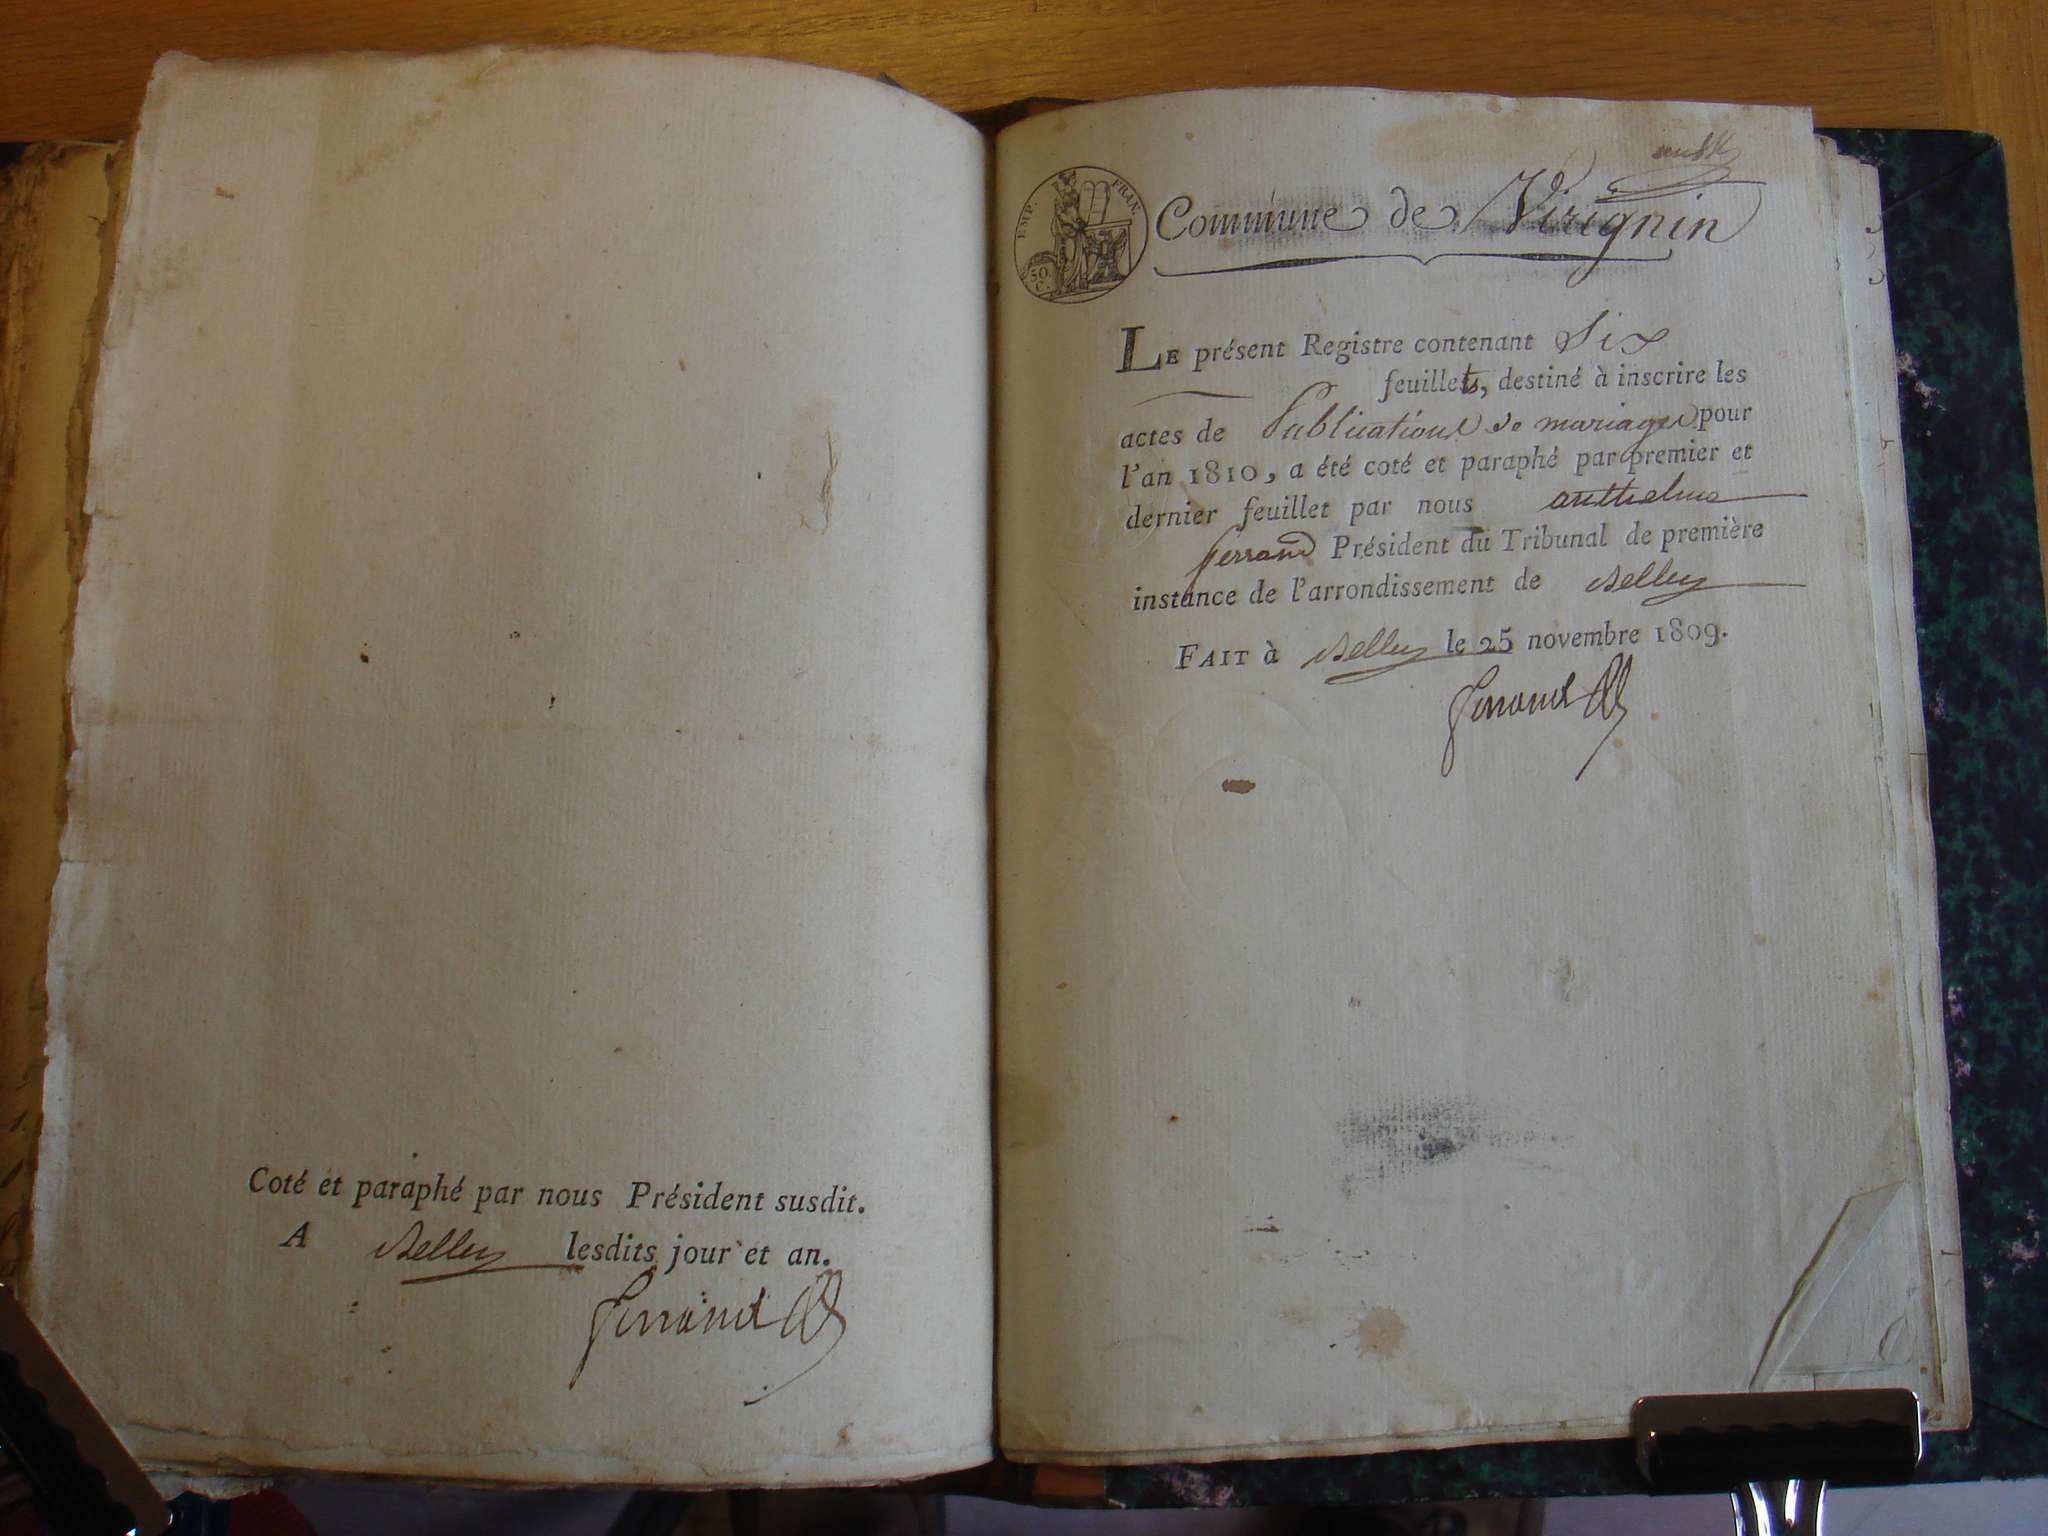 Coté et paraphé par nous Président susdit.
A Belley lesdits jour et an.
Ferrand
EMP. FRAN.
50. C.
Commune de Virignin
LE présent Registre contenant Six
feuillets, destiné à inscrire les
actes de Publications de mariages pour
l'an 1810, a été coté et paraphé par premier et
dernier feuillet par nous anthelme
ferrand Président du Tribunal de première
instance de l'arrondissement de Belley
FAIT à Belley le 25 novembre 1809.
Ferrand